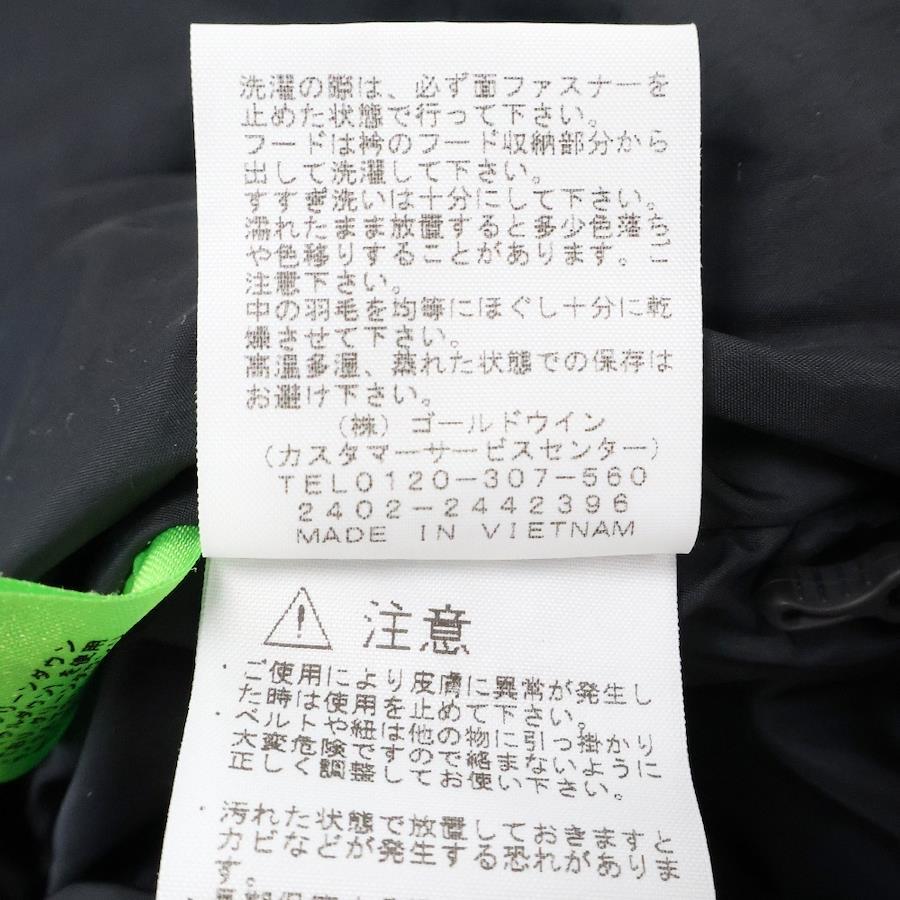 洗濯の際は、必ず面ファスナーを
止めた状態で行って下さい。
フードは衿のフード収納部分から
出して洗濯して下さい。
すすぎ洗いは十分にして下さい。
濡れたまま放置すると多少色落ち
や色移りすることがあります。ご
注意下さい。
中の羽毛を均等にほぐし十分に乾
燥させて下さい。
高温多湿、蒸れた状態での保存は
お避け下さい。
(株)ゴールドウイン
(カスタマーサービスセンター)
TEL0120-307-560
2402-2442396
MADE IN VIETNAM
注意
・ご使用により皮膚に異常が発生し
た時は使用を止めて下さい。
・ベルトや紐は他の物に引っ掛かり
大変危険ですので絡まないように
正しく調整してお使い下さい。
・汚れた状態で放置しておきますと
カビなどが発生する恐れがありま
す。
リーンダウン
を使用